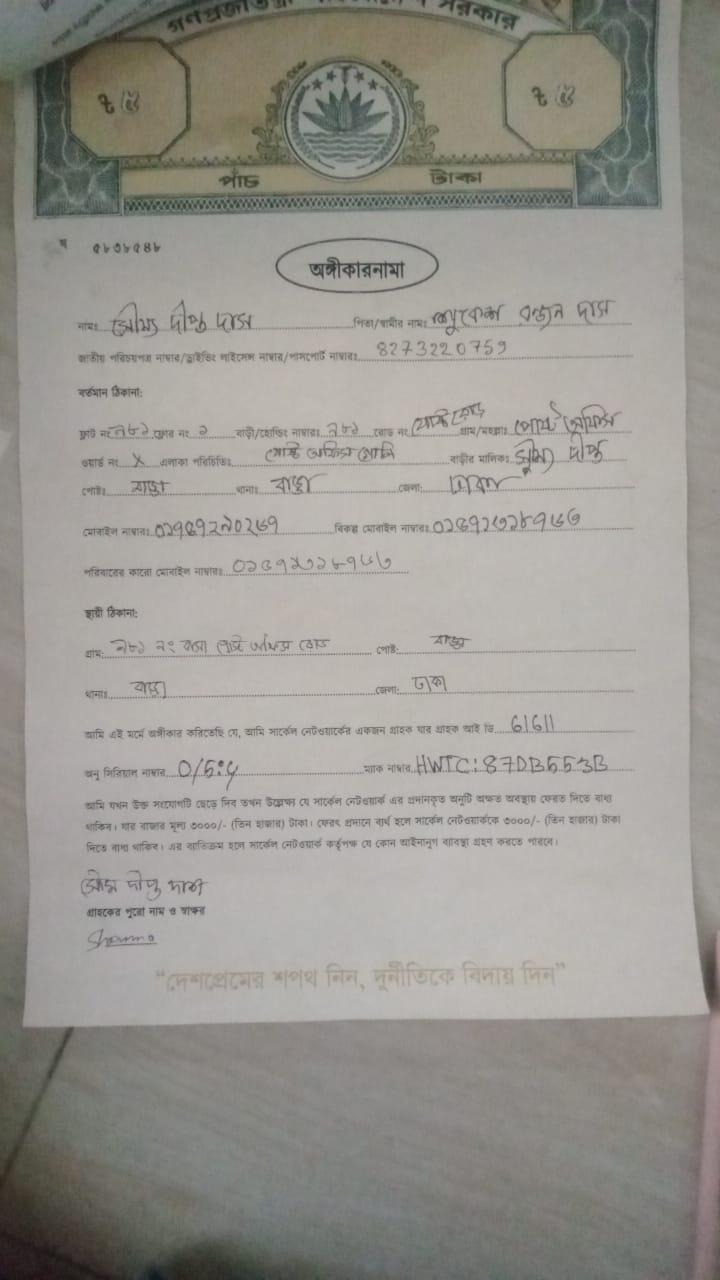 সরকার
৳ ৫ ৳ ৫
পাঁচ টাকা
৫৮৩৮৫৪৮
অঙ্গীকারনামা
নামঃ সৌম্য দীপ্ত দাস পিতা/স্বামীর নামঃ রঞ্জন দাস
জাতীয় পরিচয়পত্র নাম্বার/ড্রাইভিং লাইসেন্স নাম্বার/পাসপোর্ট নাম্বারঃ 8273220759
বর্তমান ঠিকানা:
ফ্লাট নং ৭৮১ ফ্লোর নং ১ বাড়ী/হোল্ডিং নাম্বারঃ ৭৮১ রোড নং গ্রাম/মহল্লাঃ পোস্ট অফিস
ওয়ার্ড নং X এলাকা পরিচিতিঃ পোস্ট অফিস বাড়ীর মালিকঃ দীপ্ত
পোষ্টঃ বাড্ডা থানাঃ বাড্ডা জেলা: ঢাকা
মোবাইল নাম্বারঃ বিকল্প মোবাইল নাম্বারঃ
পরিবারের কারো মোবাইল নাম্বারঃ
স্থায়ী ঠিকানা:
গ্রাম: ৭৮১ নং পোস্ট অফিস রোড পোষ্ট: বাড্ডা
থানাঃ বাড্ডা জেলা: ঢাকা
আমি এই মর্মে অঙ্গীকার করিতেছি যে, আমি সার্কেল নেটওয়ার্কের একজন গ্রাহক যার গ্রাহক আই ডি 61611
অনু সিরিয়াল নাম্বার 0/5:4 ম্যাক নাম্বার HWTC: 87DB553B
আমি যখন উক্ত সংযোগটি ছেড়ে দিব তখন উল্লেক্ষ্য যে সার্কেল নেটওয়ার্ক এর প্রদানকৃত অনুটি অক্ষত অবস্থায় ফেরত দিতে বাধ্য
থাকিব। যার বাজার মূল্য ৩০০০/- (তিন হাজার) টাকা। ফেরৎ প্রদানে ব্যর্থ হলে সার্কেল নেটওয়ার্ককে ৩০০০/- (তিন হাজার) টাকা
দিতে বাধ্য থাকিব। এর ব্যতিক্রম হলে সার্কেল নেটওয়ার্ক কর্তৃপক্ষ যে কোন আইনানুগ ব্যবস্থা গ্রহন করতে পারবে।
সৌম্য দীপ্ত দাস
গ্রাহকের পুরো নাম ও স্বাক্ষর
“দেশপ্রেমের শপথ নিন, দুর্নীতিকে বিদায় দিন”